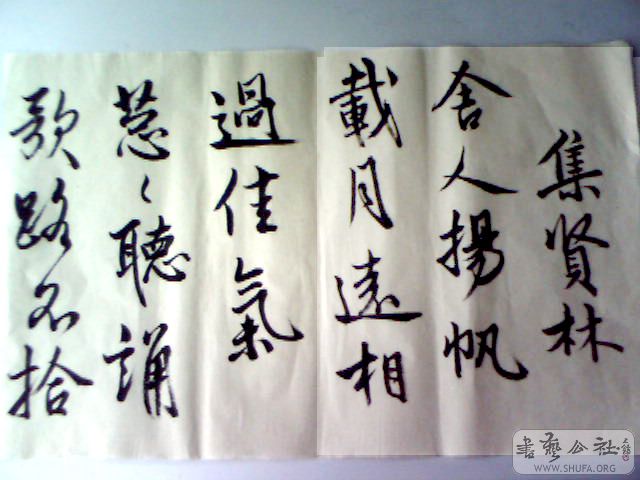 集賢林
舍人揚帆
載月遠相
過佳氣
葱々聽誦
歌路不拾
書藝公社
WWW.SHUFA.ORG